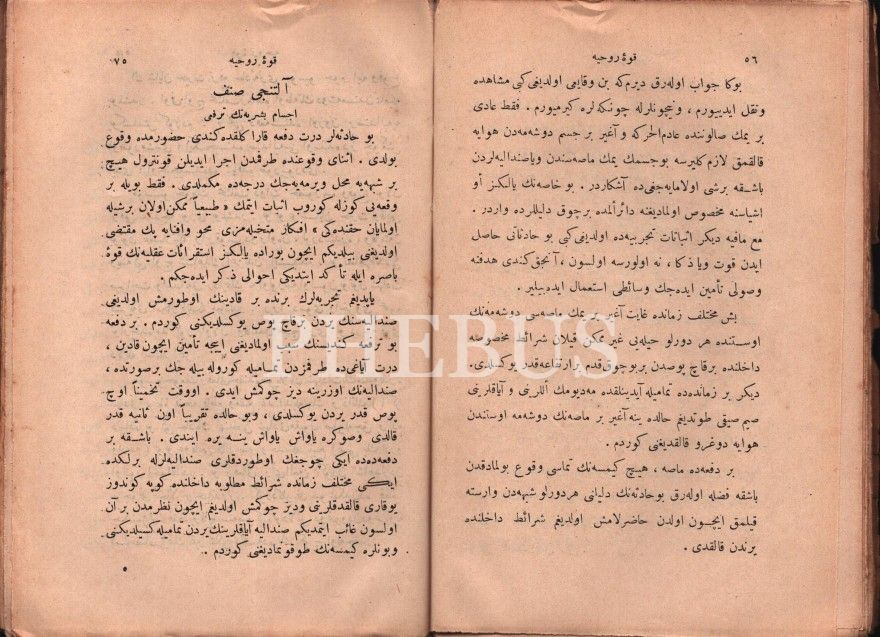 قوهٔ روحیه
٥٦
بوکا جواب اوله‌رق دیرم‌که بن وقایعی اولدیغی کبی مشاهده
و نقل ایدییورم ، و نیچونلرله چونکه‌لره کیرمیورم . فقط عادی
بر یمك صالوننده عادم‌الحرکه و آغیر بر جسم دوشه‌مه‌دن هوایه
قالقمق لازم کلیرسه بوجسمك یمك ماصه‌سندن ویاصندالیه‌لردن
باشقه برشی اولامایه‌جغی‌ده آشکاردر . بو خاصه‌نك یالکز أو
اشیاسنه مخصوص اولمادیغنه دائر المده برچوق دلیللرده واردر .
مع مافیه دیکر اثباتات تجربیه‌ده اولدیغی کبی بو حادثاتی حاصل
ایدن قوت ویا ذکا ، نه اولورسه اولسون ، آنجق کندی هدفنه
وصولی تأمین ایده‌جك وسائطی استعمال ایده‌بیلیر .
بش مختلف زمانده غایت آغیر بر یمك ماصه‌سی دوشه‌مه‌نك
اوستنده هر دورلو حیله‌یی غیر ممکن قیلان شرائط مخصوصه
داخلنده برقاچ پوصدن بر بوچوق قدم بر ارتفاعه‌قدر یوکسلدی.
دیکر بر زمانده‌ده تمامیله آیدینلقده مه‌دیومك أللرنی و آیاقلرینی
صیم صیقی طوتدیغم حالده ینه آغیر بر ماصه‌نك دوشه‌مه اوستندن
هوایه دوغرو قالقدیغنی کوردم .
بر دفعه‌ده ماصه ، هیچ کیمسه‌نك تماسی وقوع بولمادقدن
باشقه فضله اوله‌رق بوحادثه‌نك دلیلنی هر دورلو شبهه‌دن وارسته
قیلمق ایچون اولدن حاضرلامش اولدیغم شرائط داخلنده
یرندن قالقدی .
قوهٔ روحیه
آلتنجی صنف
اجسام بشریه‌نك ترفعی
بو حادثه‌لر درت دفعه قارا کلقده کندی حضورمده وقوع
بولدی . اثنای وقوعنده طرفمدن اجرا ایدیلن قونترول هیچ
بر شبهه‌یه محل ویرمه‌یه‌جك درجه‌ده مکملدی . فقط بویله بر
وقعه‌یی کوزله کوروب اثبات ایتمك « طبیعیاً ممکن اولان برشیله
اولمایان حقنده‌کی » افکار متخیله‌مزی محو و افنایه پك مقتضی
اولدیغنی بیلدیکم ایچون بوراده یالکز استقرائات عقلیه‌نك قوهٔ
باصره ایله تأکد ایتدیکی احوالی ذکر ایده‌جکم .
یاپدیغم تجربه‌لرك برنده بر قادینك اوطورمش اولدیغی
صندالیه‌سنك یردن برقاچ پوص یوکسلدیکنی کوردم . بر دفعه
بو ترفعه کندیسنك سبب اولمادیغنی اییجه تأمین ایچون قادین ،
درت آیاغی‌ده طرفمزدن تمامیله کوروله بیله جك برصورتده ،
صندالیه‌نك اوزرینه دیز چوکمش ایدی . اووقت تخمیناً اوچ
پوص قدر یردن یوکسلدی ، و بو حالده تقریباً اون ثانیه قدر
قالدی و صوکره یاواش یاواش ینه یره ایندی . باشقه بر
دفعه‌ده‌ده ایکی چوجغك اوطوردقلری صندالیه‌لرله برلکده
ایکی مختلف زمانده شرائط مطلوبه داخلنده کوپه کوندوز
یوقاری قالقدقلرینی و دیز چوکمش اولدیغم ایچون نظرمدن بر آن
اولسون غائب ایتمدیکم صندالیه آیاقلرینك یردن تمامیله کسیلدیکنی
و بونلره کیمسه‌نك طوقونمادیغنی کوردم .
PHEBUS